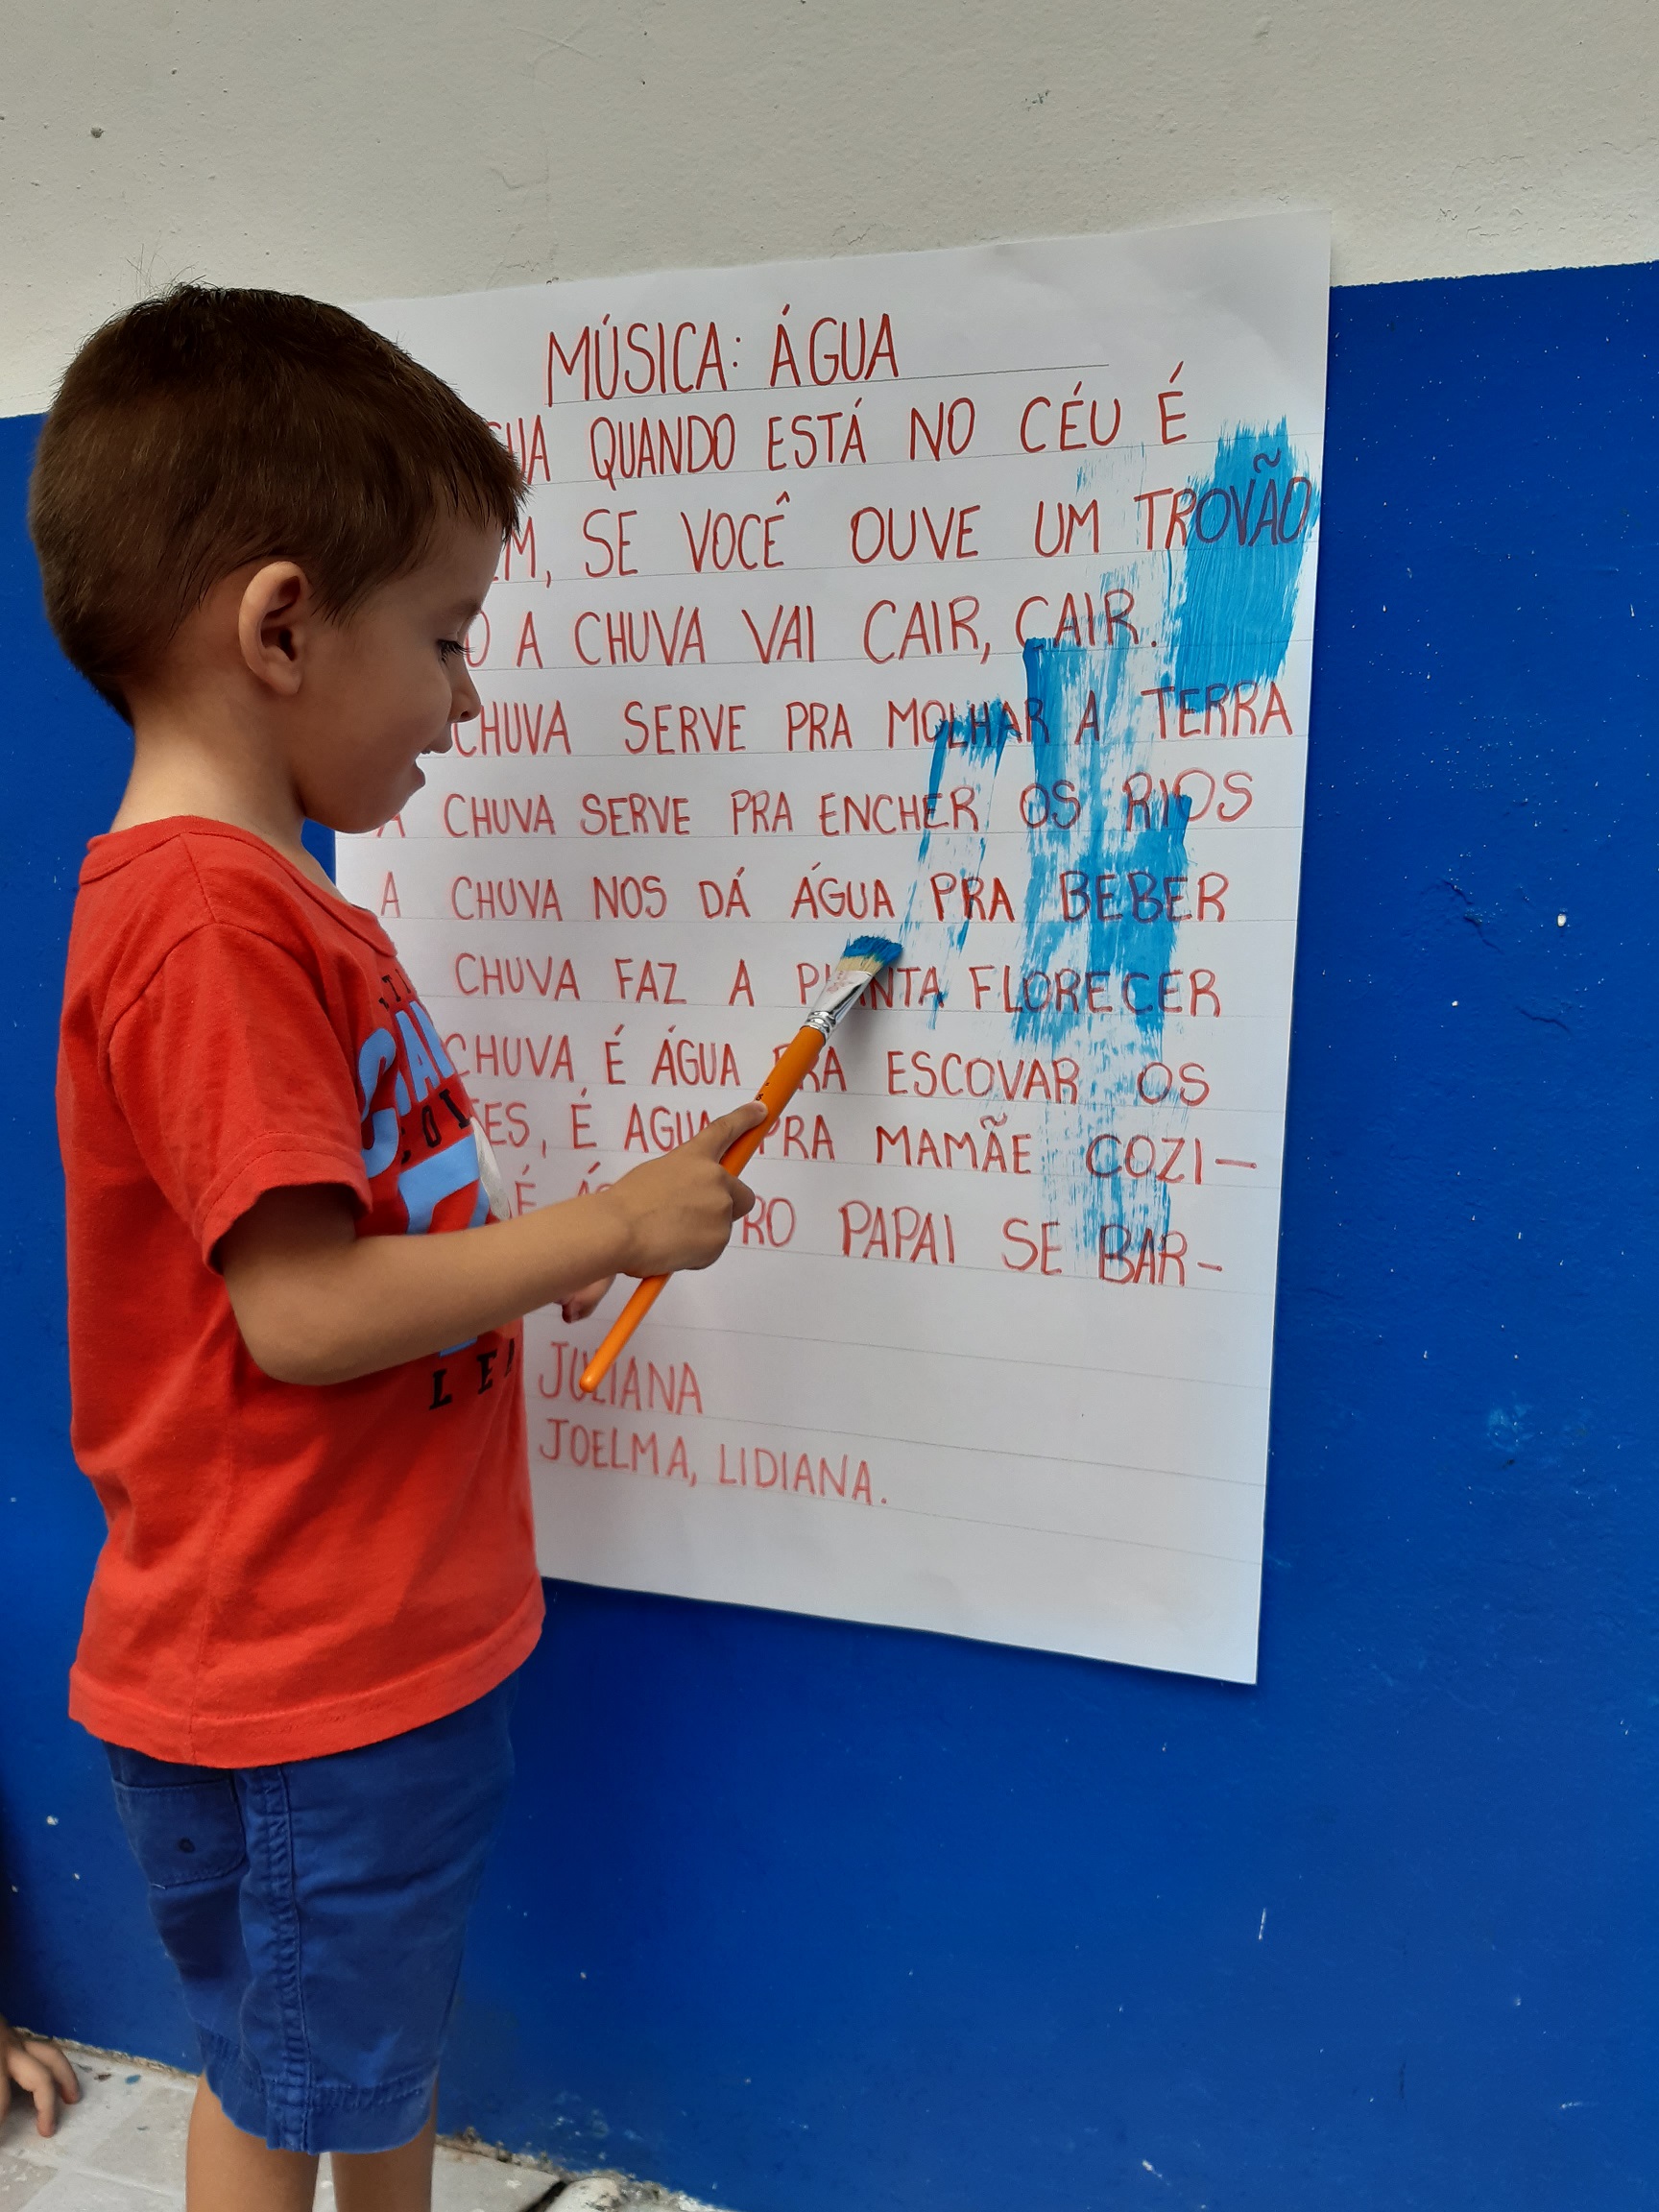 MÚSICA: ÁGUA
QUANDO ESTÁ NO CÉU É
SE VOCÊ OUVE UM TROVÃO
A CHUVA VAI CAIR, CAIR.
CHUVA SERVE PRA MOLHAR A TERRA
A CHUVA SERVE PRA ENCHER OS RIOS
A CHUVA NOS DÁ ÁGUA PRA BEBER
CHUVA FAZ A PLANTA FLORECER
CHUVA É ÁGUA PRA ESCOVAR OS
É AGUA PRA MAMÃE COZI-
É PRO PAPAI SE BAR-
JULIANA
JOELMA, LIDIANA.